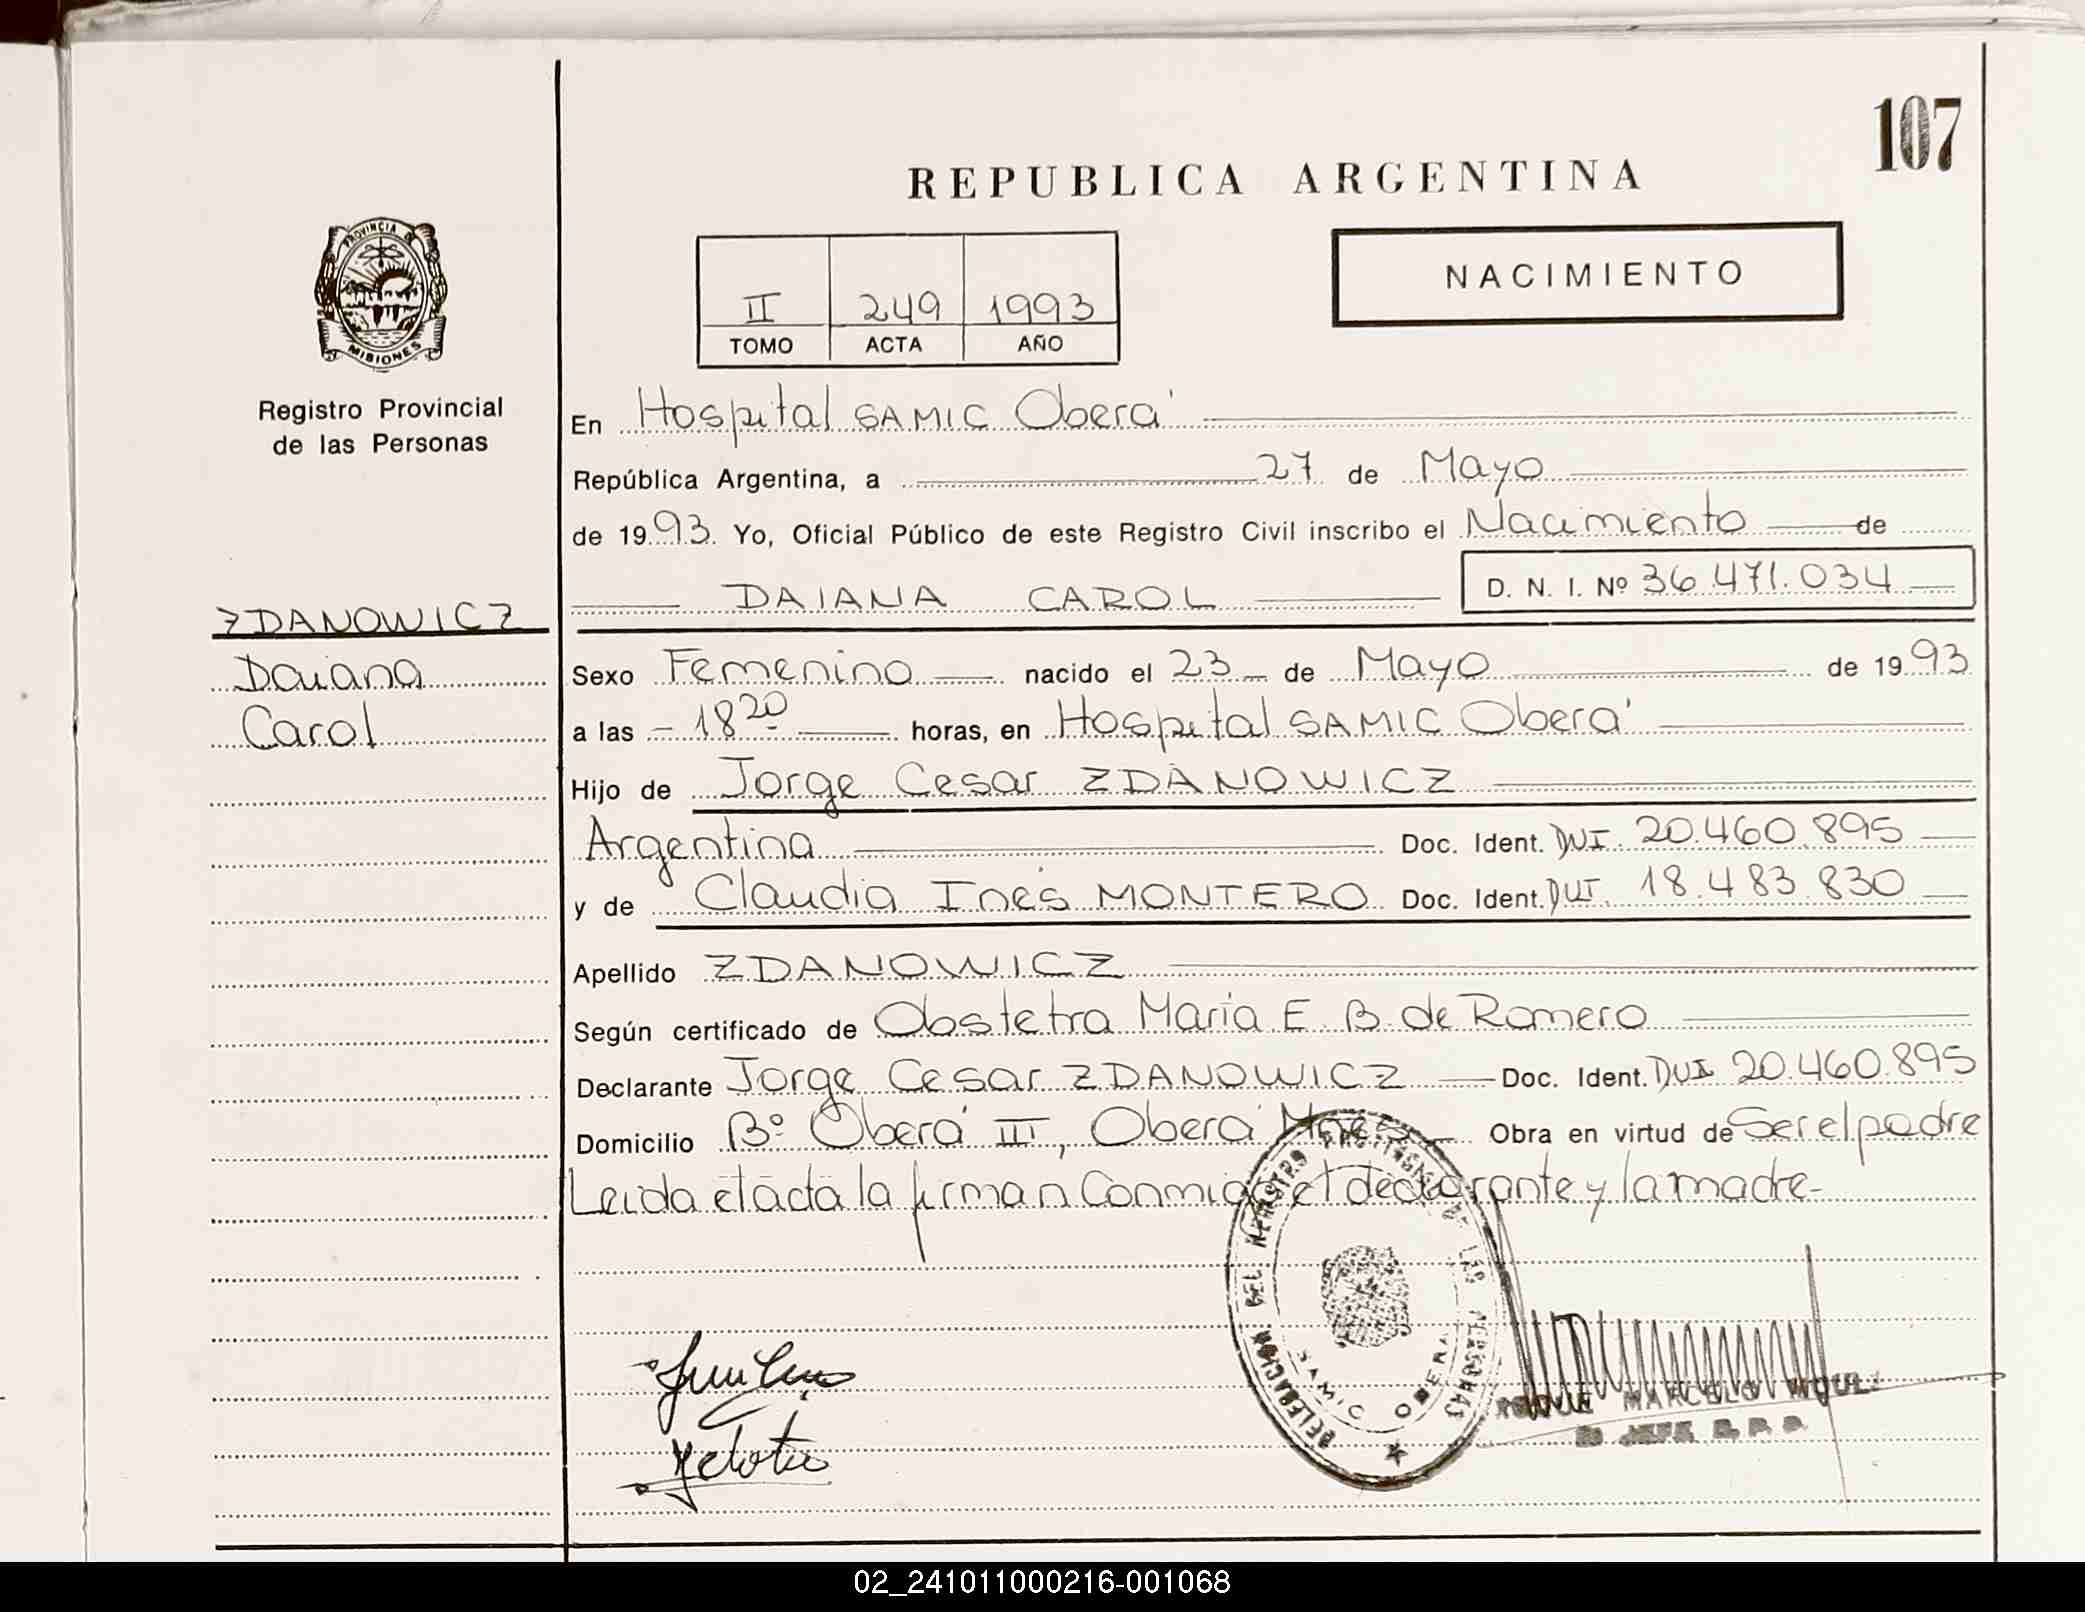 107
REPUBLICA ARGENTINA
PROVINCIA DE
MISIONES
Registro Provincial
de las Personas
II 249 1993
TOMO ACTA AÑO
NACIMIENTO
En Hospital SAMIC Oberá
República Argentina, a 27 de Mayo
de 1993 Yo, Oficial Público de este Registro Civil inscribo el Nacimiento de
DAIANA CAROL D. N. I. Nº 36.471.034
ZDANOWICZ
Daiana
Carol
Sexo Femenino nacido el 23 de Mayo de 1993
a las 18 20 horas, en Hospital SAMIC Oberá
Hijo de Jorge Cesar ZDANOWICZ
Argentina Doc. Ident. DNI. 20.460.895
y de Claudia Inés MONTERO Doc. Ident. DNI. 18.483.830
Apellido ZDANOWICZ
Según certificado de Obstetra María E. B. de Romero
Declarante Jorge Cesar ZDANOWICZ Doc. Ident. DNI 20.460.895
Domicilio Bº Oberá III, Oberá Mnes Obra en virtud de Ser el padre
Leida el acta la firman Conmigo el declarante y la madre-
DELEGACION DEL REGISTRO PROVINCIAL DE LAS PERSONAS
SAMIC OBERA
MARCELO
02_241011000216-001068